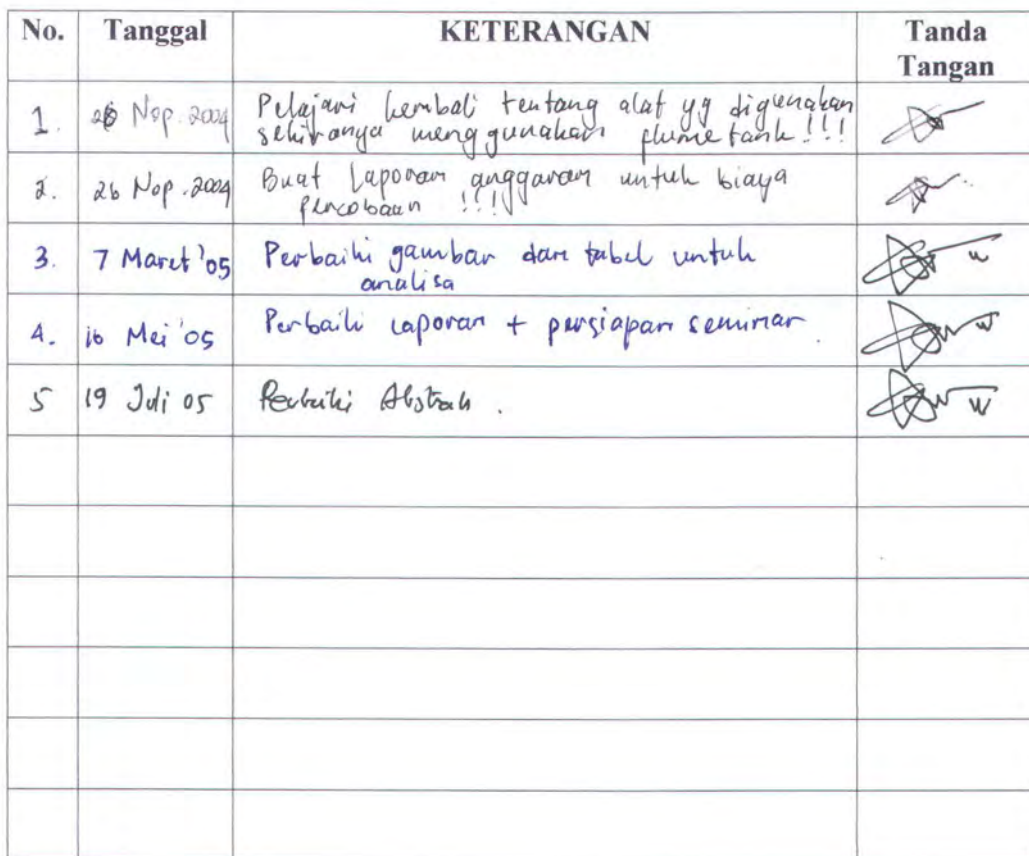 No. Tanggal KETERANGAN Tanda
Tangan
1. Nop. 2004 Pelajari kembali tentang alat yg digunakan
sekiranya menggunakan flume tank!!!
2. 26 Nop. 2004 Buat laporan anggaran untuk biaya
percobaan !!!
3. 7 Maret '05 Perbaiki gambar dan tabel untuk
analisa
4. 16 Mei '05 Perbaiki laporan + persiapan seminar
5 19 Juli 05 Perbaiki Abstrak .